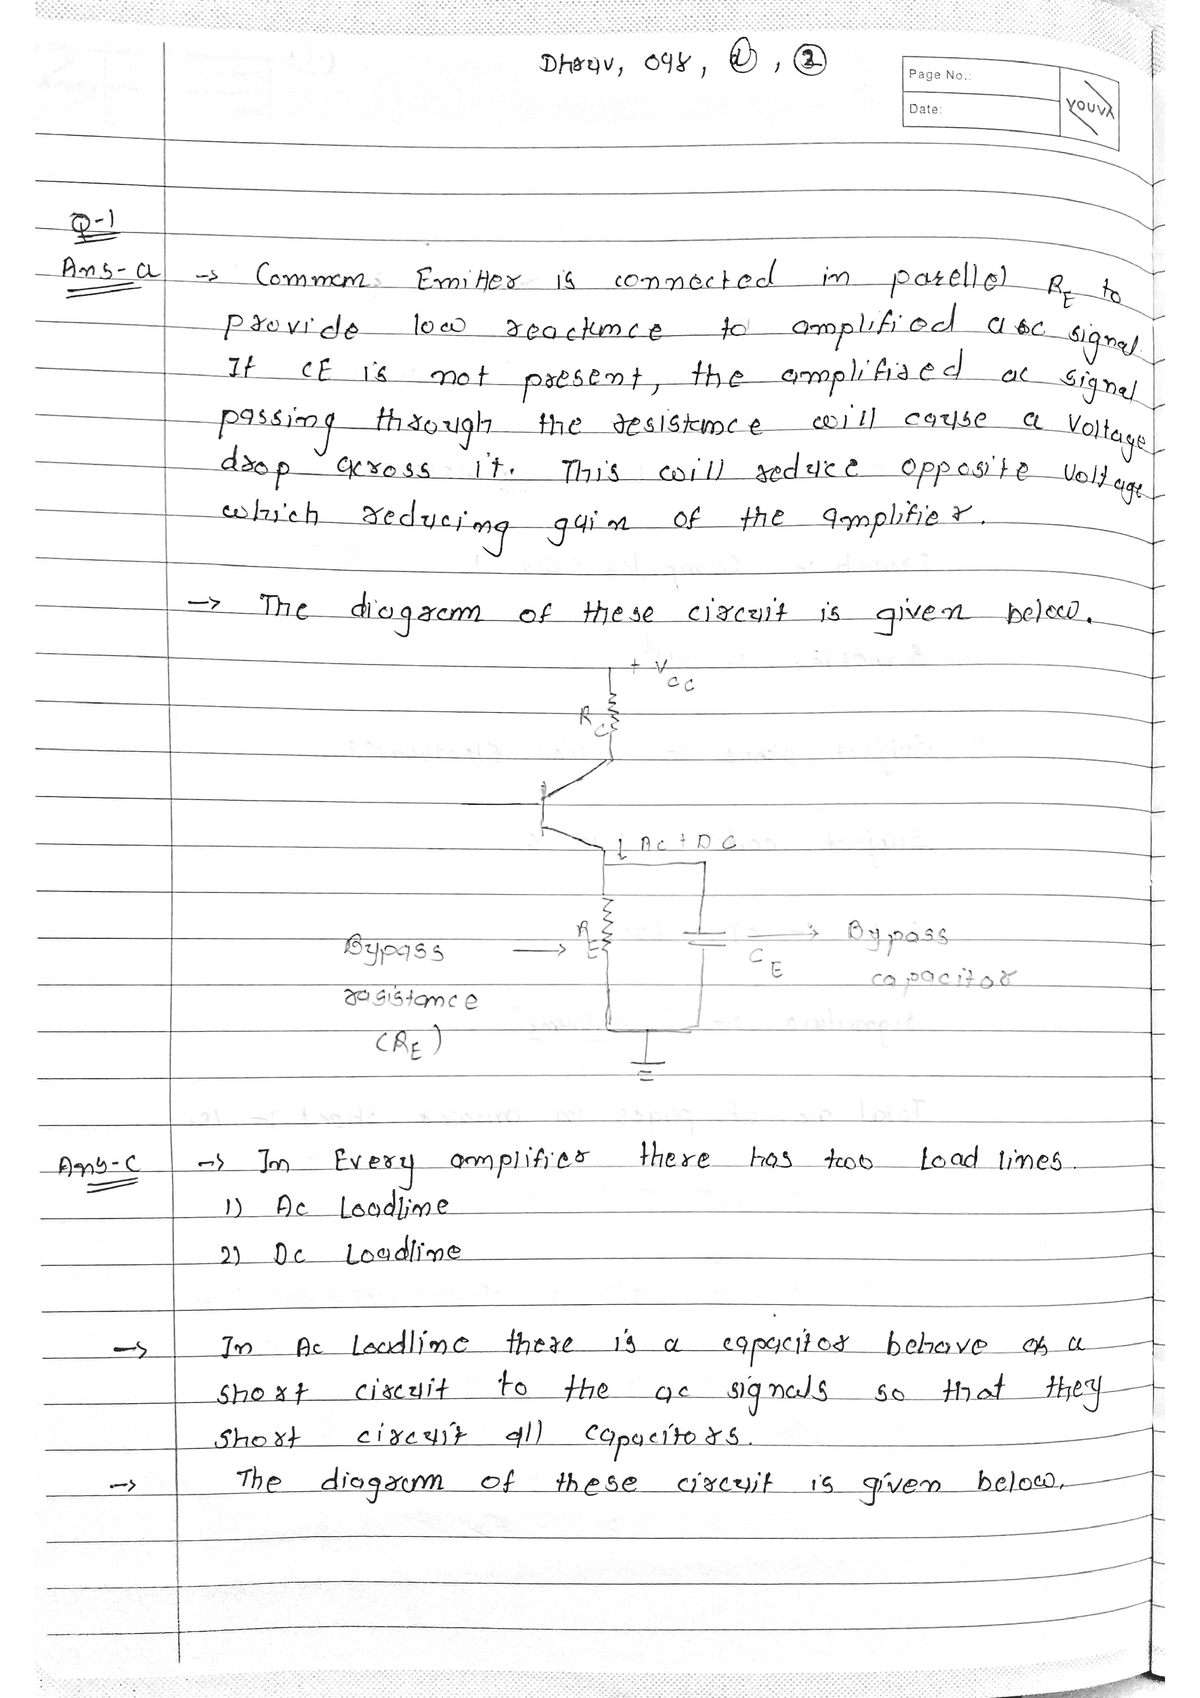 Dhruv, 098, , 2
Page No.:
Date:
YOUVA
Q-1
Ans-a → Common Emitter is connected in parellel RE to
provide low reactance to amplified ac signal.
If CE is not present, the amplified ac signal
passing through the resistance will cause a voltage
drop across it. This will reduce opposite voltage
which reducing gain of the amplifier.
→ The diagram of these circuit is given below.
+ VCC
RC
↓ AC + DC
Bypass → RE
CE → Bypass
capacitor
resistance
(RE)
Ans-c → In Every amplifier there has two load lines.
1) Ac Loadline
2) Dc Loadline
→ In Ac Loadline there is a capacitor behave as a
short circuit to the ac signals so that they
short circuit all capacitors.
→ The diagram of these circuit is given below.